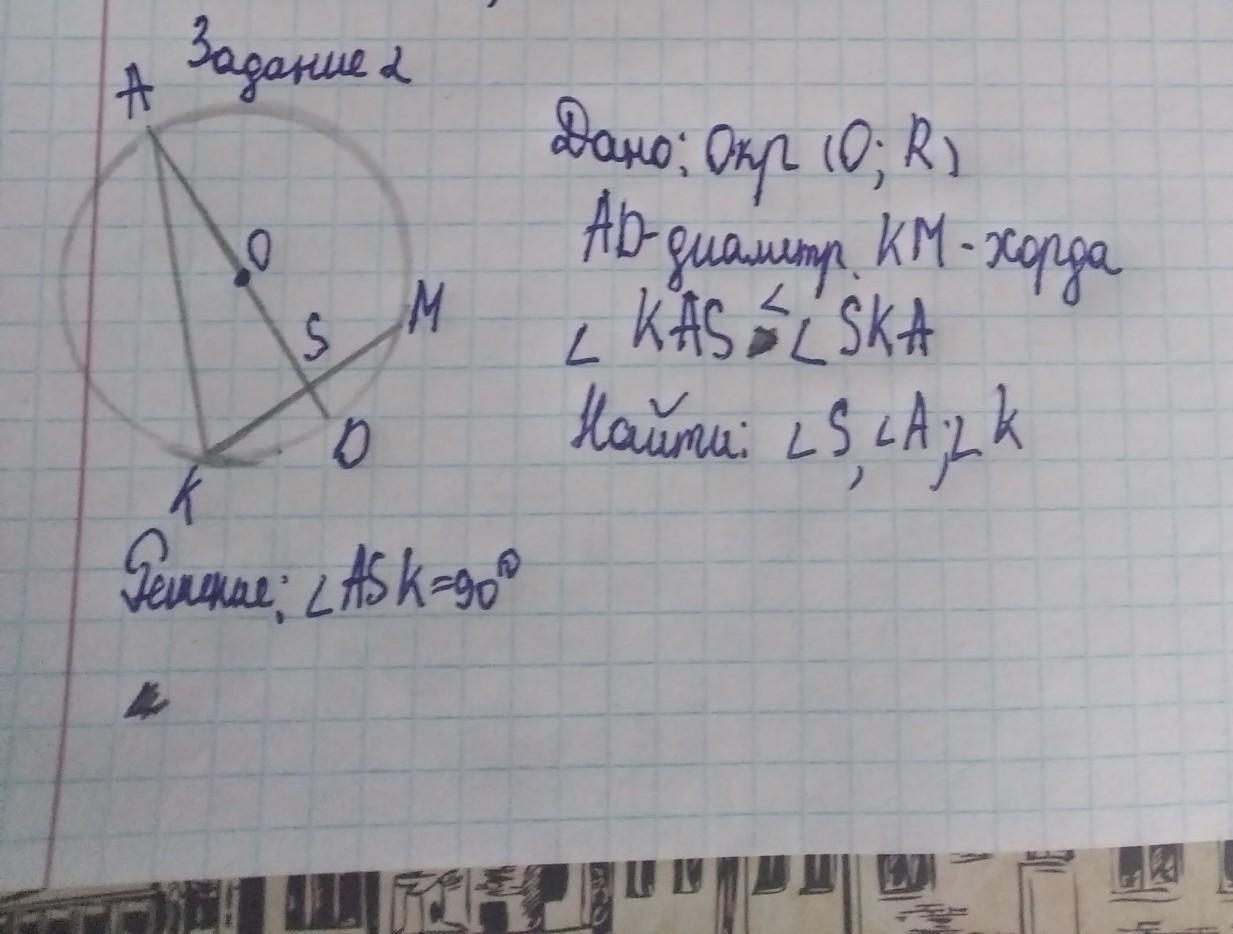 Задание 2
A
O
S
M
D
K
Дано: Окр (O; R)
AD-диаметр. KM - хорда
∠ KAS < ∠ SKA
Найти: ∠ S, ∠ A; ∠ K
Решение: ∠ ASK = 90°